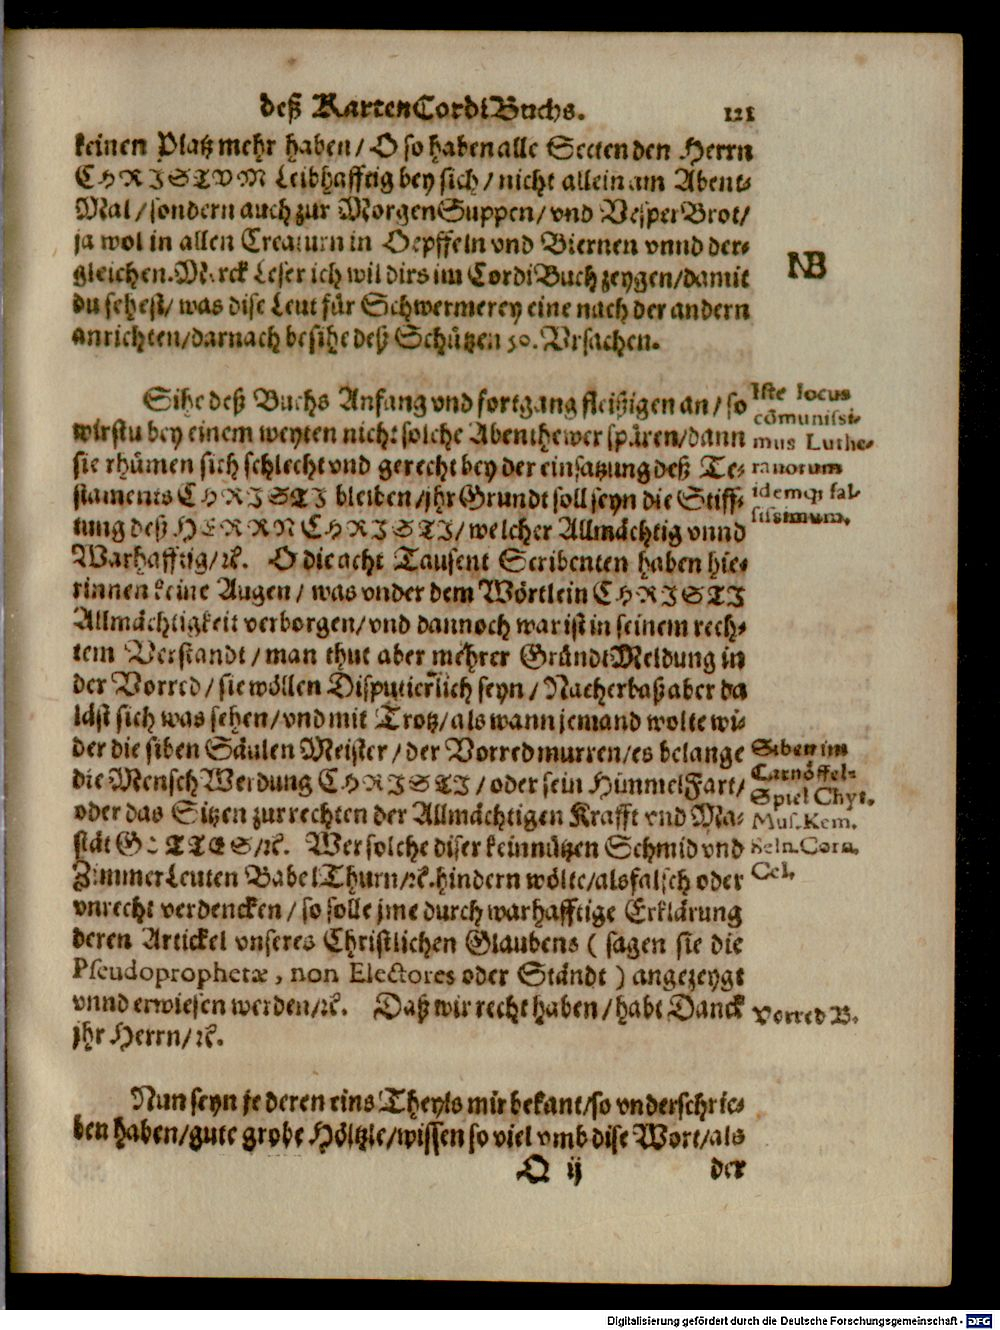 deß KartenCordiBuchs. 121
keinen Platz mehr haben/ O so haben alle Secten den Herrn
CHRISTVM Leibhafftig bey sich/ nicht allein am Abent-
Mal/ sondern auch zur MorgenSuppen/ vnd VesperBrot/
ja wol in allen Creaturn in Oepffeln vnd Biernen vnnd der-
gleichen. Merck Leser ich wil dirs im CordiBuch zeygen/ damit
du sehest/ was dise Leut für Schwermerey eine nach der andern
anrichten/ darnach besihe deß Schützen 50. Vrsachen.
NB
Sihe deß Buchs Anfang vnd fortgang fleissigen an/ so
wirstu bey einem weyten nicht solche Abenthewer spüren/ dann
sie rhümen sich schlecht vnd gerecht bey der einsatzung deß Te-
staments CHRISTI bleiben/ jhr Grundt soll seyn die Stiff-
tung deß HERRN CHRISTI/ welcher Allmächtig vnnd
Warhafftig/ ꝛc. O die acht Tausent Scribenten haben hie-
rinnen keine Augen/ was vnder dem Wörtlein CHRISTI
Allmächtigkeit verborgen/ vnd dannoch war ist in seinem rech-
tem Verstandt/ man thut aber mehrer GründtMeldung in
der Vorred/ sie wöllen Disputierlich seyn/ Nacherbaß aber da
läst sich was sehen/ vnd mit Trotz/ als wann jemand wolte wi-
der die siben Säulen Meister/ der Vorred murren/ es belange
die MenschWerdung CHRISTI/ oder sein HimmelFart/
oder das Sitzen zur rechten der Allmächtigen Krafft vnd Ma-
stät GOTTES/ ꝛc. Wer solche diser keinnützen Schmid vnd
ZimmerLeuten BabelThurn/ ꝛc. hindern wölte/ als falsch oder
vnrecht verdencken/ so solle jme durch warhafftige Erklärung
deren Artickel vnseres Christlichen Glaubens ( sagen sie die
Pseudoprophetæ, non Electores oder Ständt ) angezeygt
vnnd erwiesen werden/ ꝛc. Daß wir recht haben/ habt Danck
jhr Herrn/ ꝛc.
Iste locus
cõmunissi-
mus Luthe-
ranorum
idemq; fal-
sissimum.
Siben im
Carnöffel-
Spiel Chyt.
Mus. Kem.
Seln. Corn.
Cel.
Vorred B.
Nun seyn je deren eins Theyls mir bekant/ so vnderschrie-
ben haben/ gute grobe Höltzle/ wissen so viel vmb dise Wort/ als
Q ij der
Digitalisierung gefördert durch die Deutsche Forschungsgemeinschaft - DFG